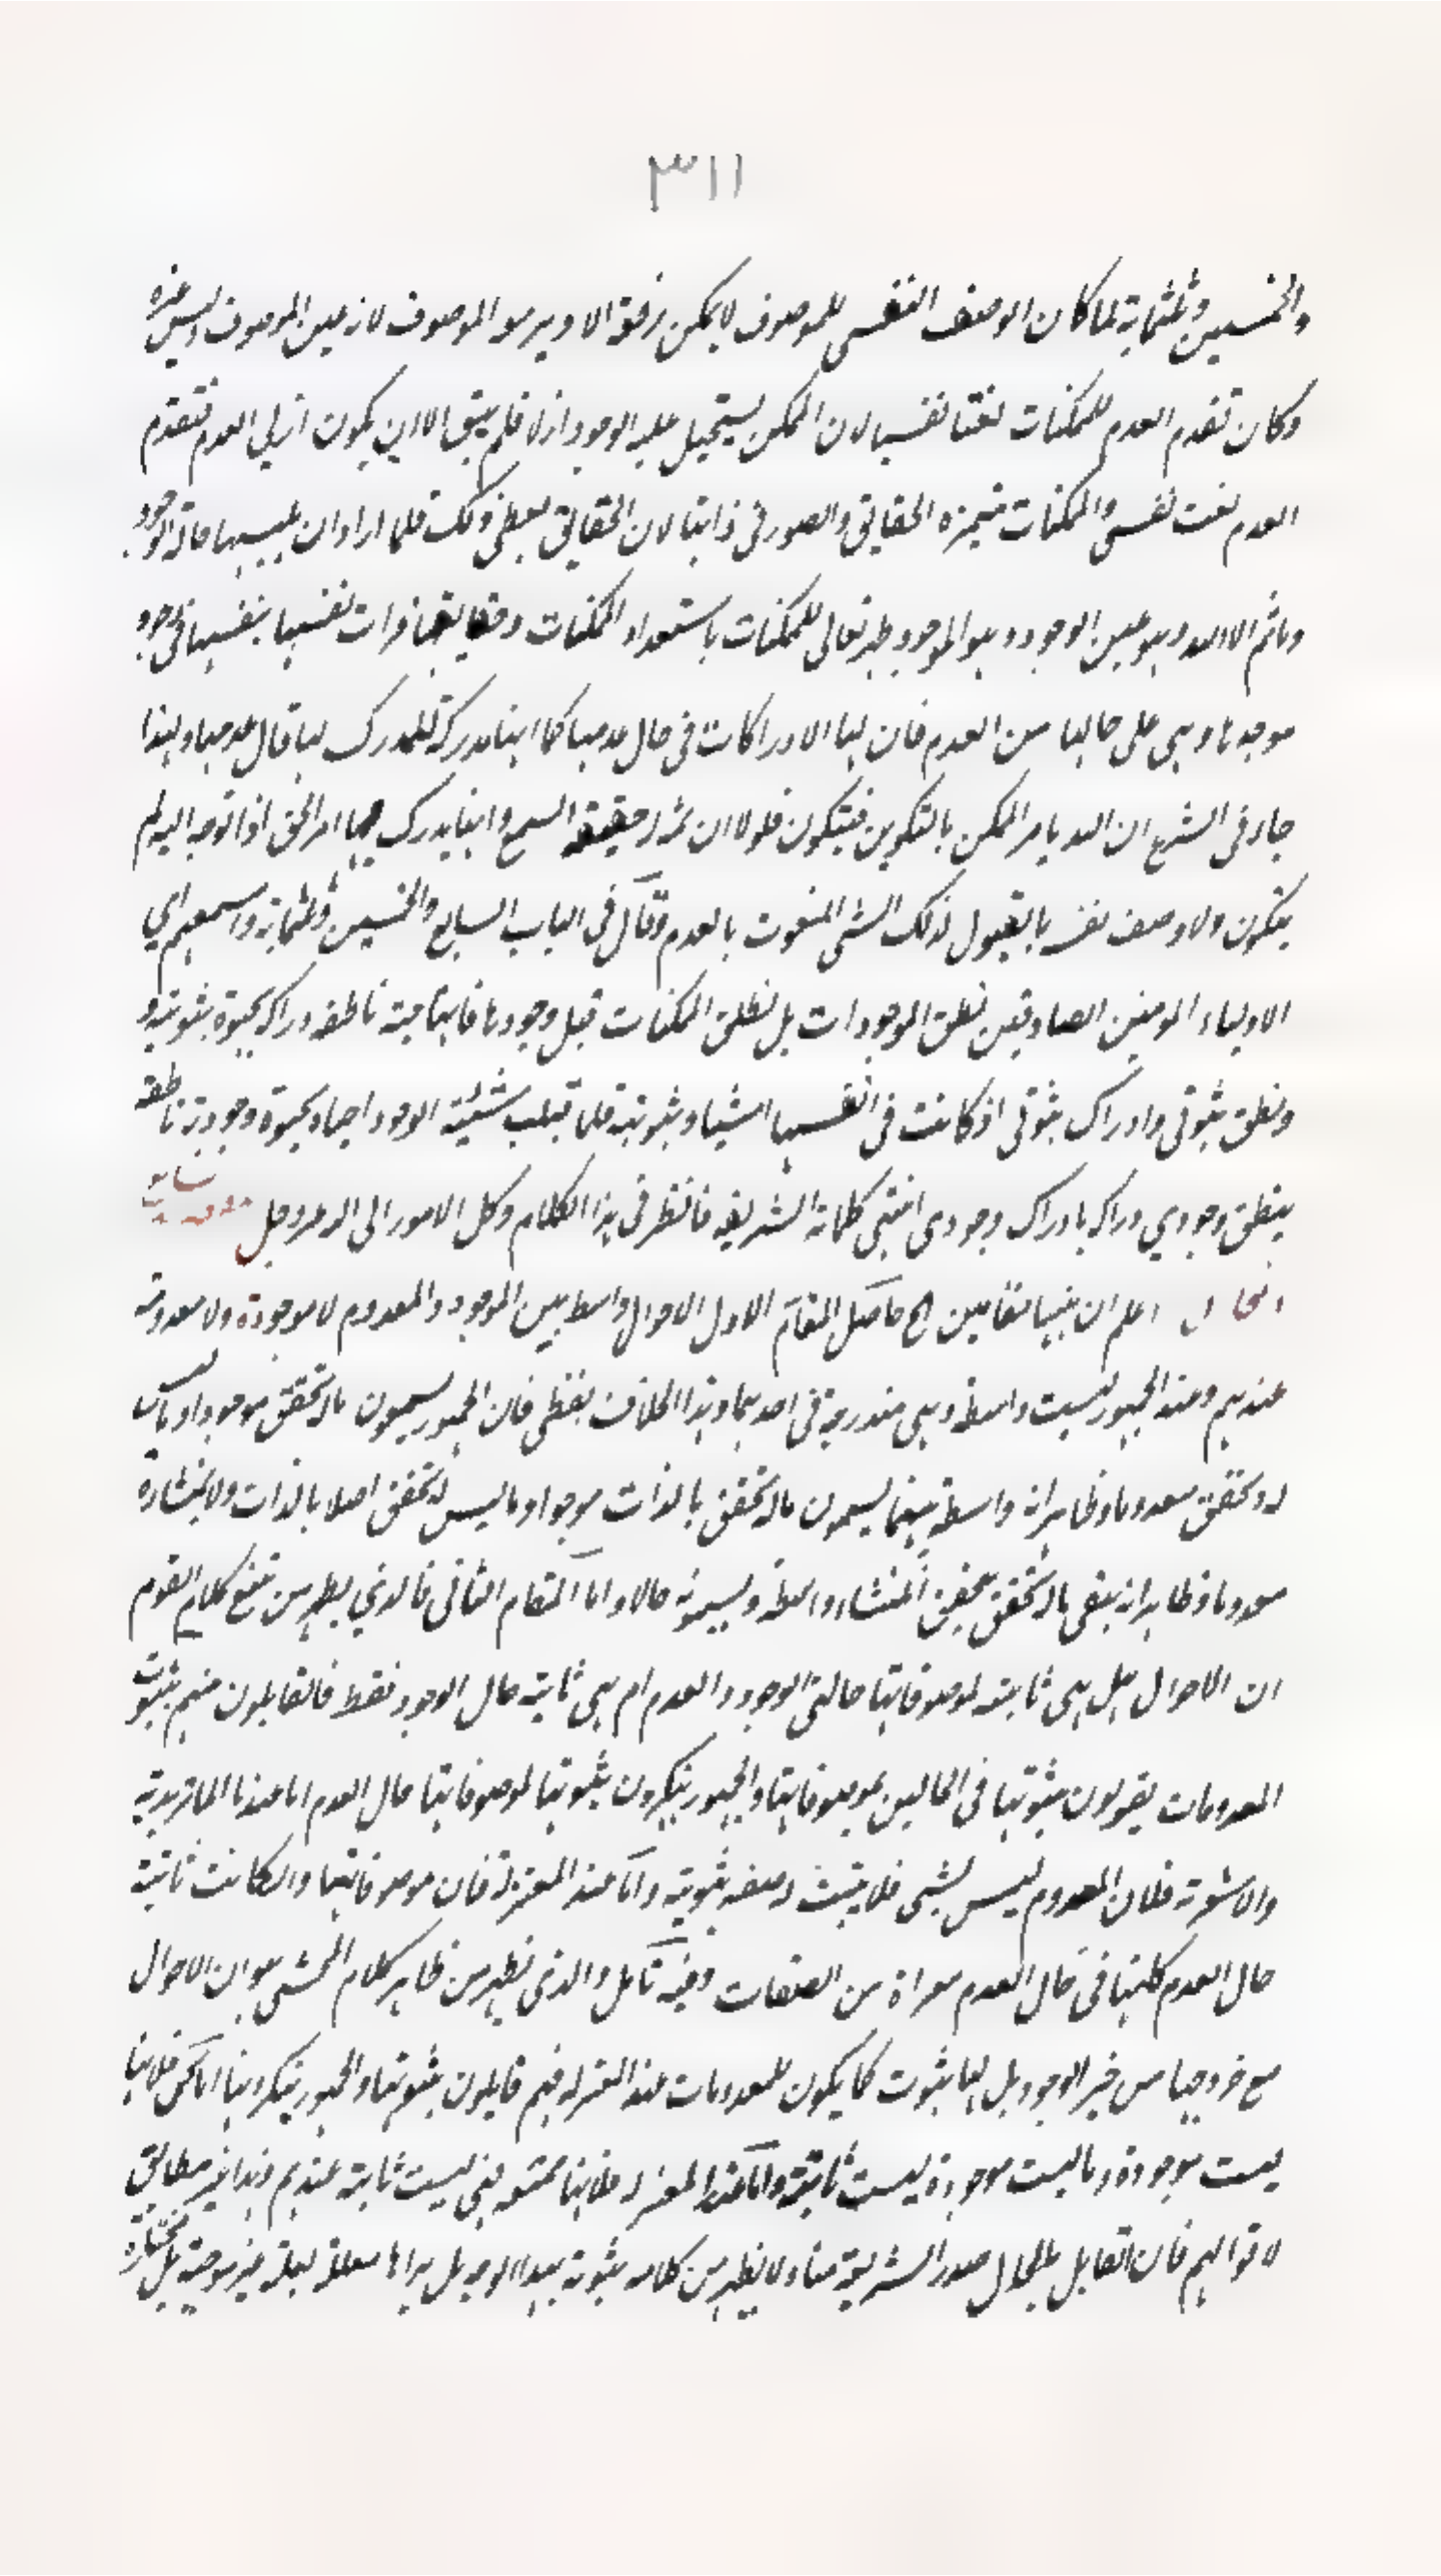 ٣١١
والخمسين وثلثماية لما كان الوصف النفسي للموصوف لا يمكن رفعه الا ويرتفع الموصوف لانه عين الموصوف وليس غيره
وكان تقدم العدم للممكنات نعتا نفسيا لان الممكن يستحيل عليه الوجود ازلا فلم يبق الا ان يكون ازلي العدم فتقدم
العدم نعت نفسي والممكنات متميزة الحقايق والصور في ذاتها لان الحقايق يعطي ذلك فلما اراد ان يلبسها حالة الوجود
وما ثم الا الله وهو عين الوجود وهو الموجود ظهر تعالى للممكنات باستعداد الممكنات وحقايقها فرات نفسها بنفسها في وجود
موجدها وهي على حالها من العدم فان لها الادراكات في حال عدمها كما انها مدركة للمدرك لها في حال عدمها ولهذا
جاء في الشرع ان الله يامر الممكن بالتكوين فيتكون فلولا ان له حقيقة السمع وانها يدرك بها امر الحق اذا توجه اليه لم
يتكون ولا وصف نفسه بالقول لذلك الشي المنعوت بالعدم وقال في الباب السابع والخمسين وثلثماية واسمعهم اي
الاولياء المومنين الصادقين نطق الموجودات بل نطق الممكنات قبل وجودها فانها حية ناطقه دراكه بحيوة ثبوتيه و
ونطق ثبوتي وادراك ثبوتي اذ كانت في انفسها اشياء ثبوتية فلما قبلت شيئية الوجود احياه بحيوة وجودية ناطقه
بنطق وجودي دراكه بادراك وجودي انتهى كلماته الشريفه فانظر في هذا الكلام وكل الامور الى الله عز وجل
اعلم ان ههنا مقامين الخ حاصل المقام الاول الاحوال واسطة بين الموجود والمعدوم لا موجودة ولا معدومة
عندهم وعند الجمهور ليست واسطة وهي مندرجة في احدهما وهذا الخلاف لفظي فان الجمهور يسمون ما له تحقق موجودا وما ليس
له تحقق معدوما وظاهر انه لا واسطة بينهما يسمون ما له تحقق بالذات موجودا وما ليس له تحقق اصلا بالذات ولا بمنشاءه
معدوما وظاهر انه بقي ما له تحقق بتحقق المنشاء واسطه ويسمونه حالا واما المقام الثاني فالذي يظهر من تتبع كلام القوم
ان الاحوال هل هي ثابته لموصوفاتها حالتي الوجود والعدم ام هي ثابته حال الوجود فقط فالقايلون منهم بثبوت
المعدومات يقولون بثبوتها في الحالين لموصوفاتها والجمهور ينكرون ثبوتها لموصوفاتها حال العدم اما عندنا الماتريدية
والاشعرية فلان المعدوم ليس بشي فلا يثبت له صفه ثبوتيه واما عند المعتزلة فان موصوفاتها وان كانت ثابتة
حال العدم لكنها في حال العدم معراة من الصفات وفيه تامل والذي يظهر من ظاهر كلام المحشي هو ان الاحوال
مع خروجها من حيز الوجود هل لها ثبوت كما يكون للمعدومات عند المعتزله فهم قايلون بثبوتها والجمهور ينكرونها اما نحن فلانها
ليست موجودة وما ليست موجودة ليست ثابتة واما عند المعتزله فلانها ممتنعه فهي ليست ثابته عندهم وهذا غير مطابق
لاقوالهم فان القايل بالحال صدر الشريعة منا ولا يظهر من كلامه ثبوته بهذا الوجه بل يراها معللة بعلة غير موجبة بل مختارة